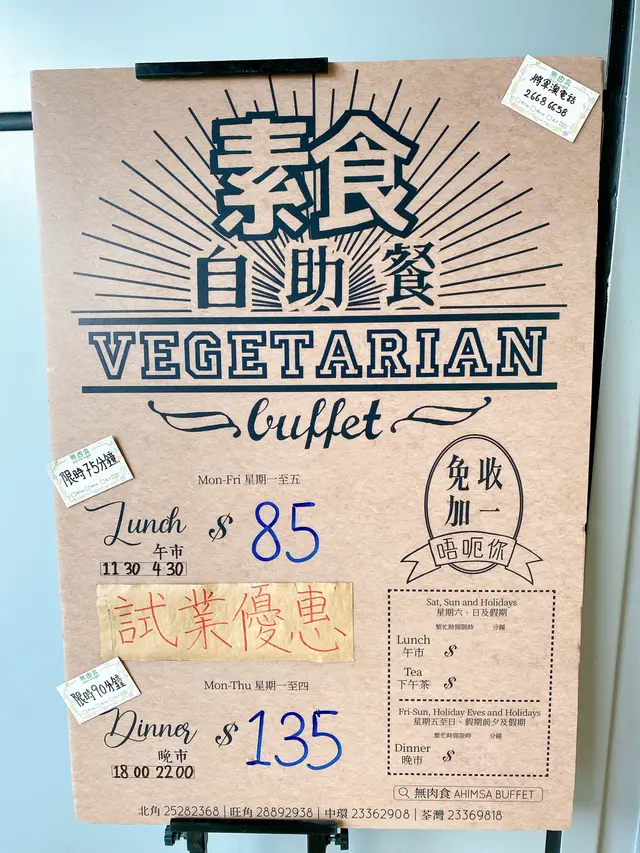 將軍澳電話
2668 6658
素食
自助餐
VEGETARIAN
buffet
無肉食
限時75分鐘
Mon-Fri 星期一至五
Lunch $ 85
午市
11 30 4 30
免收
加一
唔呃你
試業優惠
Sat, Sun and Holidays
星期六、日及假期
繁忙時間限時 分鐘
Lunch
午市 $
Tea
下午茶 $
無肉食
限時90分鐘
Mon-Thu 星期一至四
Dinner $ 135
晚市
18 00 22 00
Fri-Sun, Holiday Eves and Holidays
星期五至日、假期前夕及假期
繁忙時間限時 分鐘
Dinner
晚市 $
無肉食 AHIMSA BUFFET
北角 25282368 | 旺角 28892938 | 中環 23362908 | 荃灣 23369818